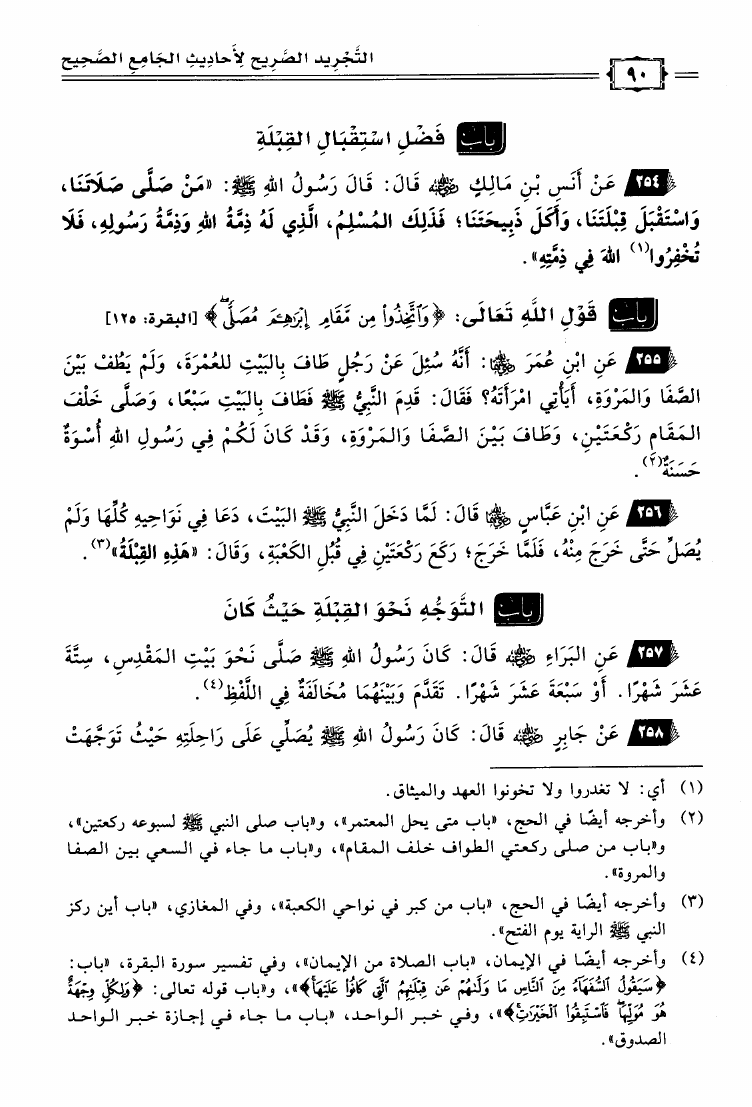 التَّجْرِيد الصَّرِيح لِأَحادِيثِ الجَامِعِ الصَّحِيح
٩٠
باب فَضْلِ اسْتِقْبَالِ القِبْلَةِ
٢٥٤ عَنْ أَنَسِ بْنِ مَالِكٍ ﷺ قَالَ: قَالَ رَسُولُ اللهِ ﷺ: «مَنْ صَلَّى صَلَاتَنَا،
وَاسْتَقْبَلَ قِبْلَتَنَا، وَأَكَلَ ذَبِيحَتَنَا؛ فَذَلِكَ المُسْلِمُ، الَّذِي لَهُ ذِمَّةُ اللهِ وَذِمَّةُ رَسُولِهِ، فَلَا
تُخْفِرُوا(١) اللهَ فِي ذِمَّتِهِ».
باب قَوْلِ اللَّهِ تَعَالَى: ﴿وَاتَّخِذُوا مِن مَّقَامِ إِبْرَاهِيمَ مُصَلًّى﴾ [البقرة: ١٢٥]
٢٥٥ عَنِ ابْنِ عُمَرَ: أَنَّهُ سُئِلَ عَنْ رَجُلٍ طَافَ بِالبَيْتِ للعُمْرَةِ، وَلَمْ يَطُفْ بَيْنَ
الصَّفَا وَالمَرْوَةِ، أَيَأْتِي امْرَأَتَهُ؟ فَقَالَ: قَدِمَ النَّبِيُّ ﷺ فَطَافَ بِالبَيْتِ سَبْعًا، وَصَلَّى خَلْفَ
المَقَامِ رَكْعَتَيْنِ، وَطَافَ بَيْنَ الصَّفَا وَالمَرْوَةِ، وَقَدْ كَانَ لَكُمْ فِي رَسُولِ اللهِ أُسْوَةٌ
حَسَنَةٌ(٢).
٢٥٦ عَنِ ابْنِ عَبَّاسٍ قَالَ: لَمَّا دَخَلَ النَّبِيُّ ﷺ البَيْتَ، دَعَا فِي نَوَاحِيهِ كُلِّهَا وَلَمْ
يُصَلِّ حَتَّى خَرَجَ مِنْهُ، فَلَمَّا خَرَجَ؛ رَكَعَ رَكْعَتَيْنِ فِي قُبُلِ الكَعْبَةِ، وَقَالَ: «هَذِهِ القِبْلَةُ»(٣).
باب التَّوَجُّهِ نَحْوَ القِبْلَةِ حَيْثُ كَانَ
٢٥٧ عَنِ البَرَاءِ قَالَ: كَانَ رَسُولُ اللهِ ﷺ صَلَّى نَحْوَ بَيْتِ المَقْدِسِ، سِتَّةَ
عَشَرَ شَهْرًا. أَوْ سَبْعَةَ عَشَرَ شَهْرًا. تَقَدَّمَ وَبَيْنَهُمَا مُخَالَفَةٌ فِي اللَّفْظِ(٤).
٢٥٨ عَنْ جَابِرٍ قَالَ: كَانَ رَسُولُ اللهِ ﷺ يُصَلِّي عَلَى رَاحِلَتِهِ حَيْثُ تَوَجَّهَتْ
(١) أي: لا تغدروا ولا تخونوا العهد والميثاق.
(٢) وأخرجه أيضًا في الحج، «باب متى يحل المعتمر»، و«باب صلى النبي ﷺ لسبوعه ركعتين»،
و«باب من صلى ركعتي الطواف خلف المقام»، و«باب ما جاء في السعي بين الصفا
والمروة».
(٣) وأخرجه أيضًا في الحج، «باب من كبر في نواحي الكعبة»، وفي المغازي، «باب أين ركز
النبي ﷺ الراية يوم الفتح».
(٤) وأخرجه أيضًا في الإيمان، «باب الصلاة من الإيمان»، وفي تفسير سورة البقرة، «باب:
﴿سَيَقُولُ السُّفَهَاءُ مِنَ النَّاسِ مَا وَلَّاهُمْ عَن قِبْلَتِهِمُ الَّتِي كَانُوا عَلَيْهَا﴾»، و«باب قوله تعالى: ﴿وَلِكُلٍّ وِجْهَةٌ
هُوَ مُوَلِّيهَا فَاسْتَبِقُوا الْخَيْرَاتِ﴾»، وفي خبر الواحد، «باب ما جاء في إجازة خبر الواحد
الصدوق».